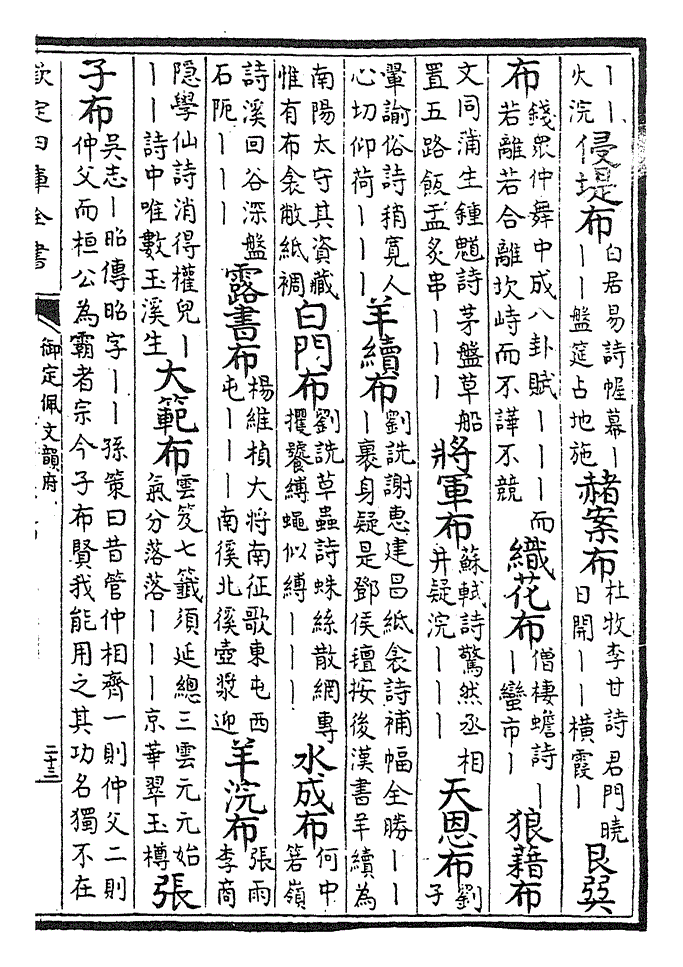 丨丨火浣侵堤布白居易詩幄幕丨丨丨盤筵占地施赭案布杜牧李甘詩君門曉日開丨丨橫霞丨艮巽
布錢衆仲舞中成八卦賦丨丨丨而若離若合離坎峙而不譁不競織花布僧棲蟾詩丨丨蠻市丨狼藉布
文同蒲生鍾馗詩茅盤草船置五路飯盂炙串丨丨丨將軍布蘇軾詩驚然丞相井疑浣丨丨丨天恩布劉子
翬諭俗詩稍寬人心切仰荷丨丨丨羊續布劉詵謝惠建昌紙衾詩補幅全勝丨丨丨裹身疑是鄧侯氊按後漢書羊續為
南陽太守其資藏惟有布衾敝紙裯白門布劉詵草蟲詩蛛絲散網專攫餮縛蠅似縛丨丨丨水成布何中箬嶺
詩溪回谷深盤石阨丨丨丨露書布楊維楨大將南征歌東屯西屯丨丨丨南徯北徯壺漿迎羊浣布張雨李商
隱學仙詩消得權兒丨丨丨詩中唯數玉溪生大範布雲笈七籤須延總三雲元元始氣分落落丨丨丨京華翠玉樽張
子布吳志丨昭傳昭字丨丨孫策曰昔管仲相齊一則仲父二則仲父而桓公為霸者宗今子布賢我能用之其功名獨不在
欽定四庫全書
御定佩文韻府
二十三